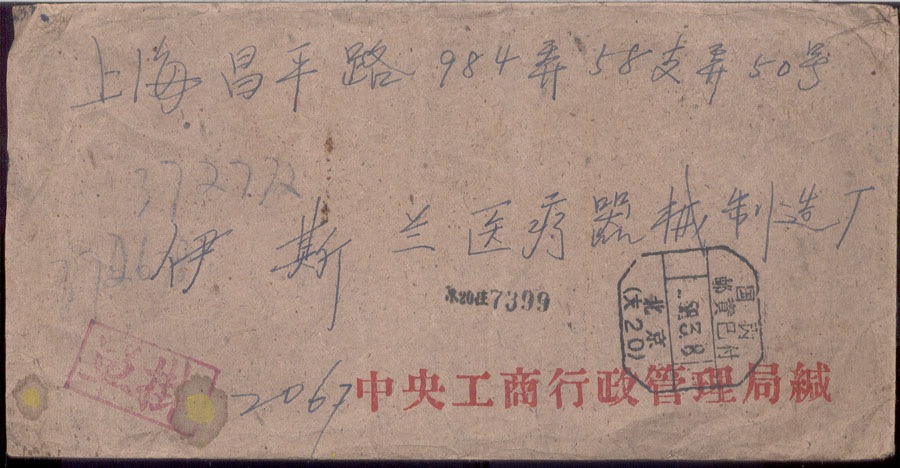 上海昌平路984弄58支弄50号
372772
伊斯兰医疗器械制造厂
7399
国内
邮资已付
北京
(大20)
2067
中央工商行政管理局缄